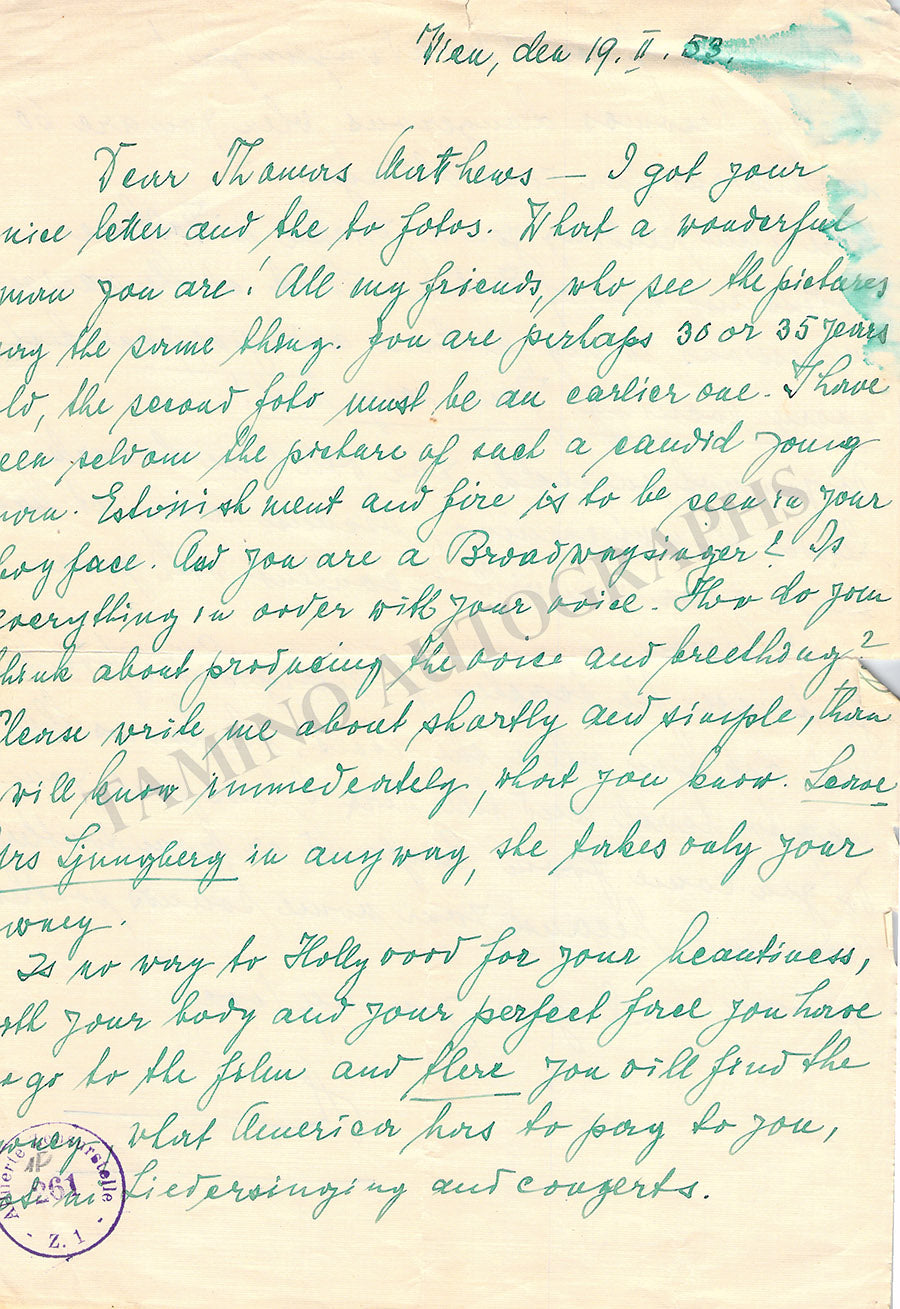 Wien, den 19. II. 53.
Dear Thomas Matthews — I got your
nice letter and the to fotos. What a wonderful
man you are! All my friends, who see the pictures
say the same thing. You are perhaps 30 or 35 years
ld, the second foto must be an earlier one. I have
een seldom the picture of such a candid young
man. Estonishment and fire is to be seen in your
boyface. And you are a Broadwaysinger? Is
everything in order with your voice. How do you
think about producing the voice and breething?
Please write me about shortly and simple, than
will know immedeately, what you know. Leave
Mrs Ljungberg in anyway, she takes only your
money.
Is no way to Hollywood for your beautiness,
with your body and your perfect face you have
to go to the film and there you will find the
money what America has to pay to you,
Liedersinging and conzerts.
TAMINO AUTOGRAPHS
Alliierte Zensurstelle
261
- Z. 1 -